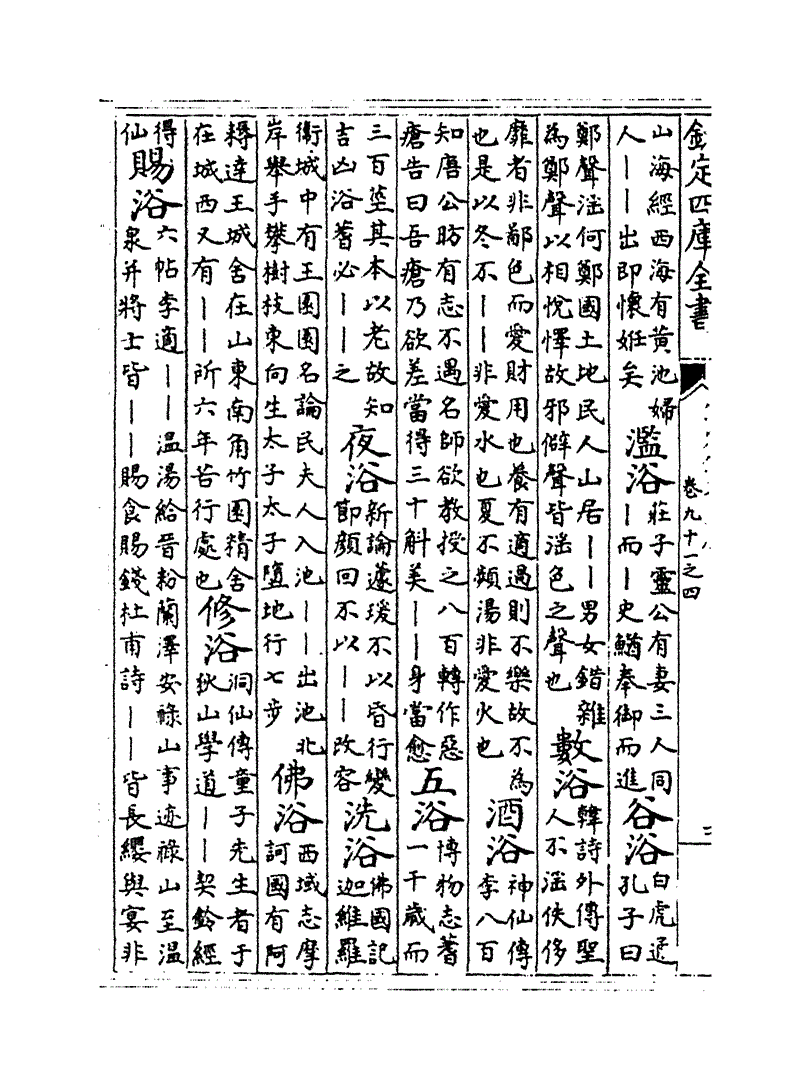 欽定四庫全書
卷九十一之四
山海經西海有黄池婦
人――出即懷姙矣
濫浴
莊子靈公有妻三人同
―而―史鰌奉御而進
谷浴
白虎通
孔子曰
鄭聲淫何鄭國土地民人山居――男女錯雜
為鄭聲以相悅懌故邪僻聲皆淫色之聲也
數浴
韓詩外傳聖
人不淫佚侈
靡者非鄙色而愛財用也養有適過則不樂故不為
也是以冬不――非愛水也夏不頻湯非愛火也
酒浴
神仙傳
李八百
知唐公昉有志不遇名師欲教授之八百轉作惡
瘡告曰吾瘡乃欲差當得三十斛美――身當愈
五浴
博物志蓍
一千歲而
三百莖其本以老故知
吉凶浴蓍必――之
夜浴
新論蘧瑗不以昏行變
節顔回不以――改容
洗浴
佛國記
迦維羅
衛城中有王園園名論民夫人入池――出池北
岸舉手攀樹枝東向生太子太子墮地行七步
佛浴
西域志摩
訶國有阿
耨逹王城舍在山東南角竹園精舍
在城西又有――所六年苦行處也
修浴
洞仙傳童子先生者于
狄山學道――契鈴經
得
仙
賜浴
六帖李適――温湯給香粉蘭澤安祿山事迹祿山至温
泉并將士皆――賜食賜錢杜甫詩――皆長纓與宴非